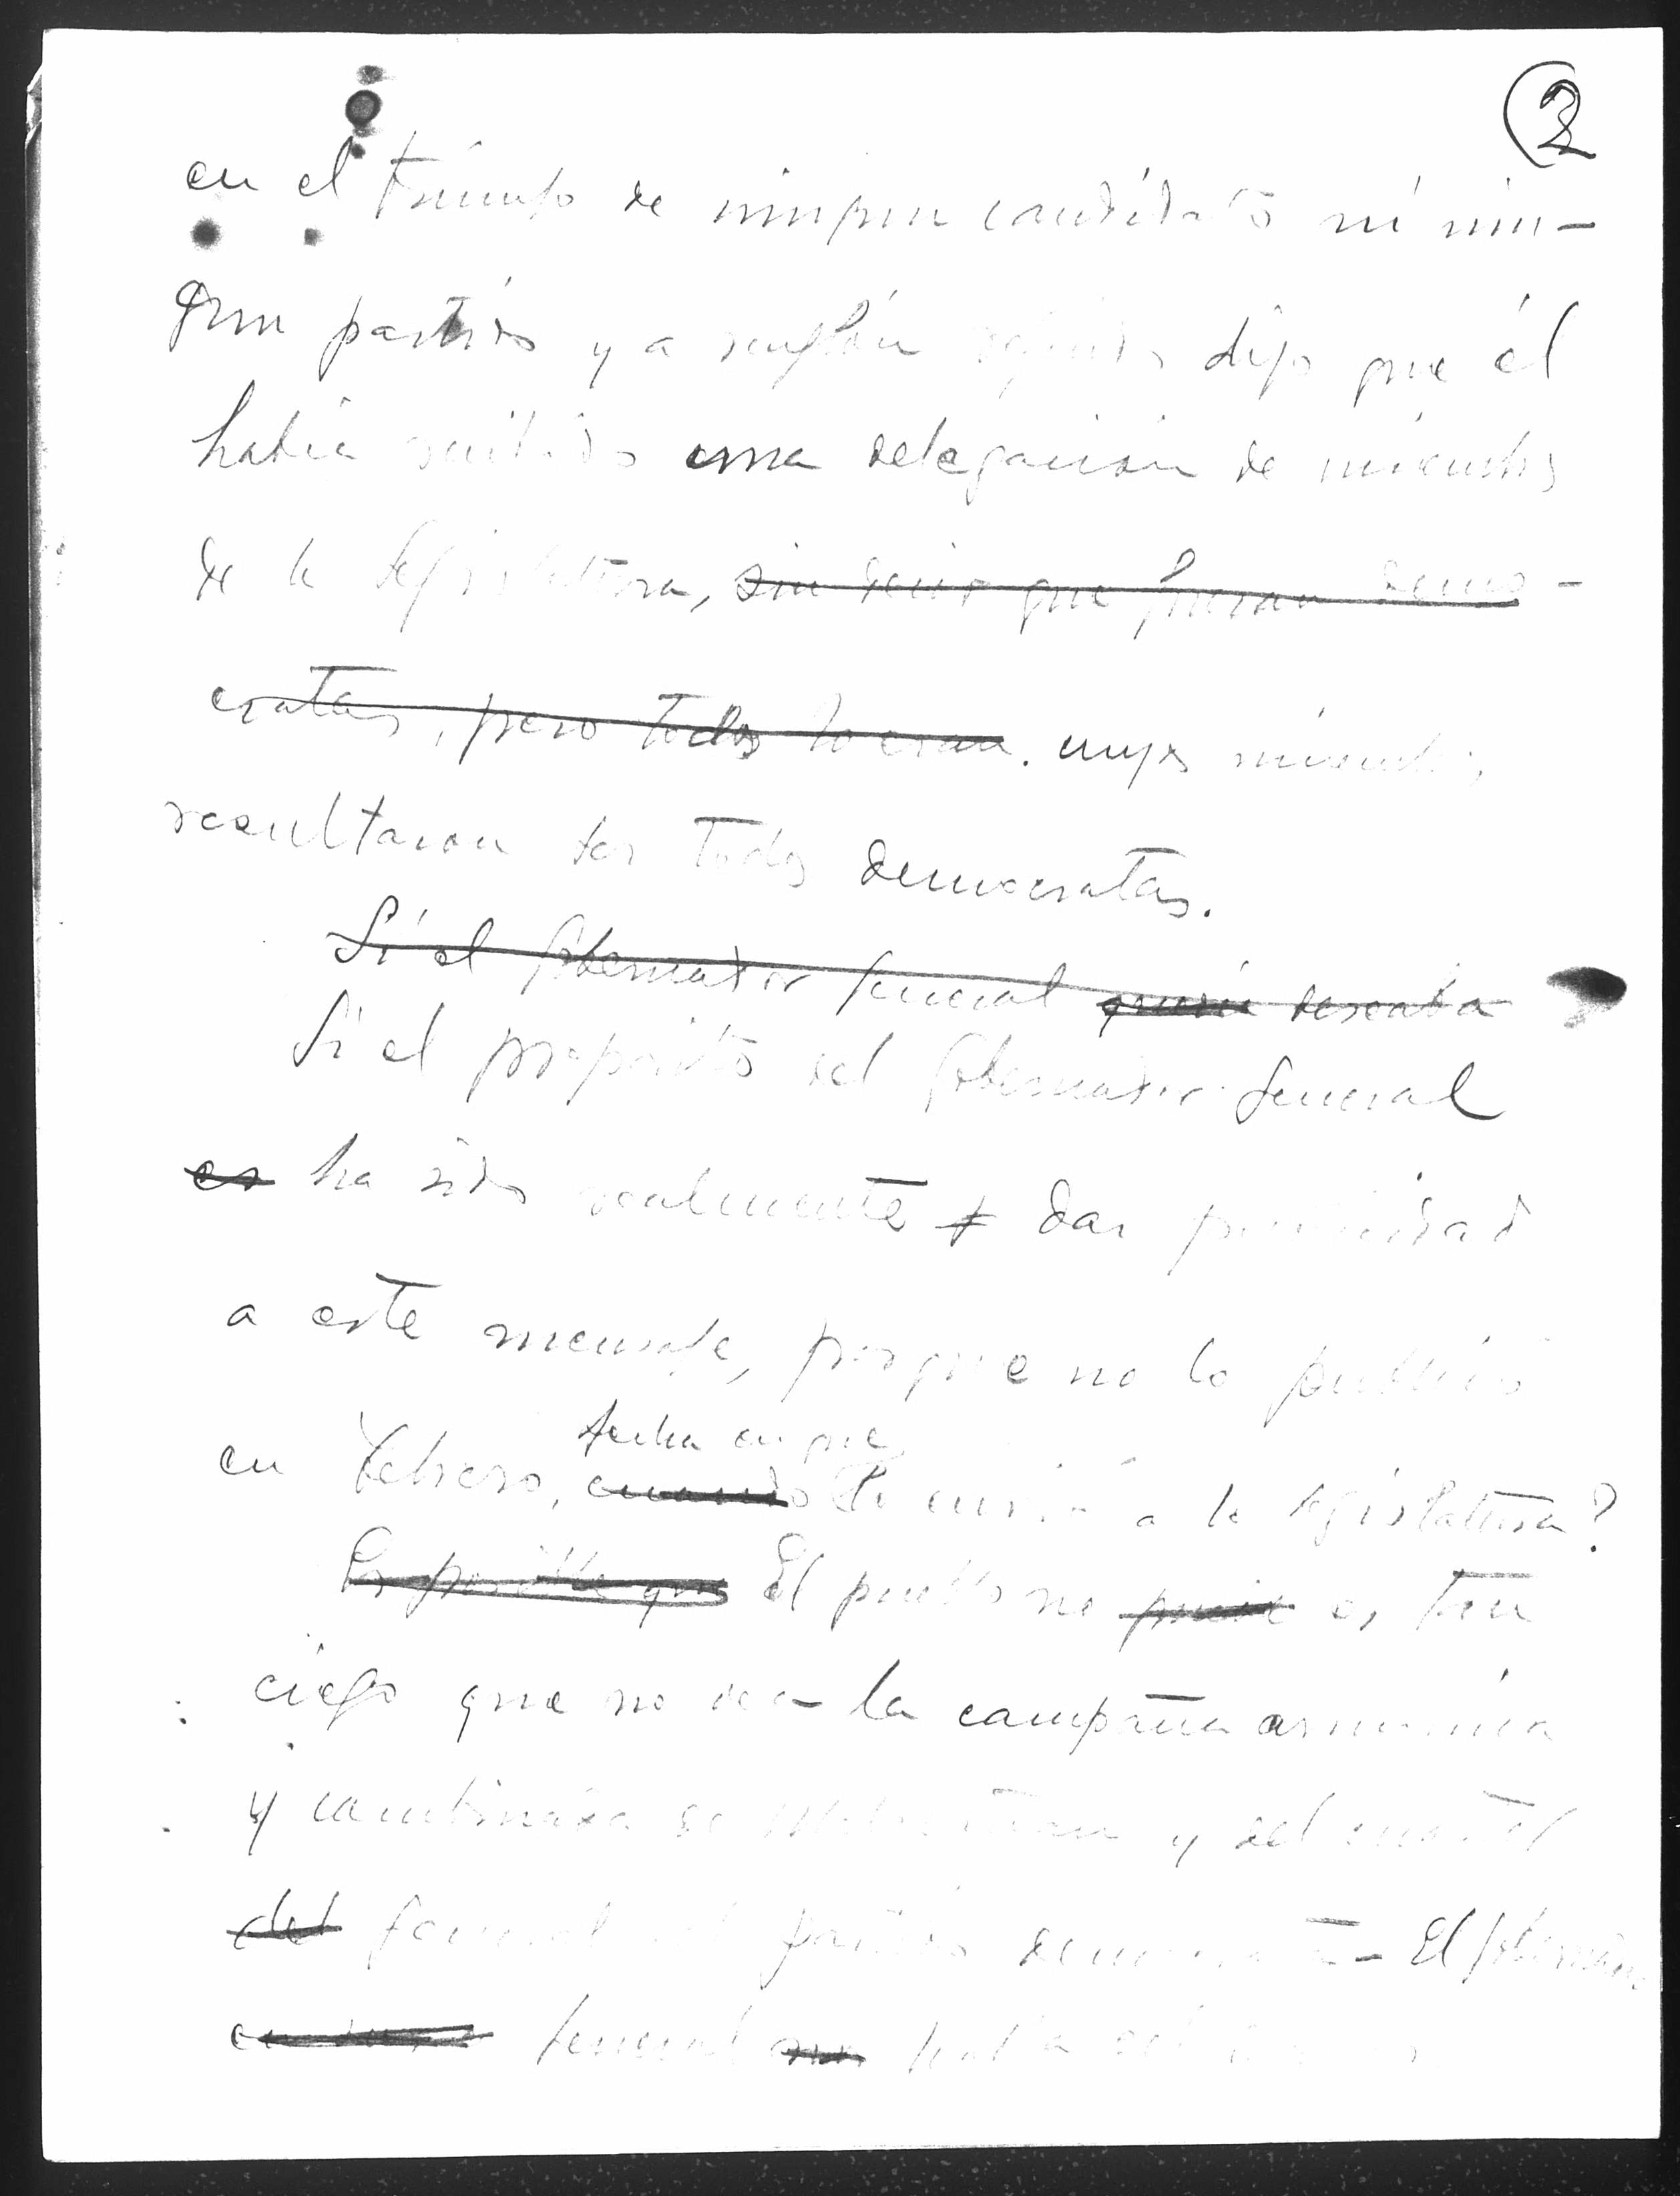 2
en el triunfo de ningun candidato ni nin-
gun partido y a renglón seguido dijo que él
había recibido una delegacion de miembros
de la legislatura, sin decir que fueran demo-
cratas, pero todos lo eran. cuyos miembros
resultaron ser todos democratas.
Si el Gobernador General queria deseaba
Si el proposito del Gobernador General
es ha sido realmente dar publicidad
a este mensaje, porque no lo publicó
fecha en que
en Febrero, cuando lo envió a la legislatura?
Es posible que El pueblo no puede es tan
ciego que no vea la campaña armónica
y combinada de Malacañan y del cuartel
del general del partido democrata - El Gobernador
General habla del